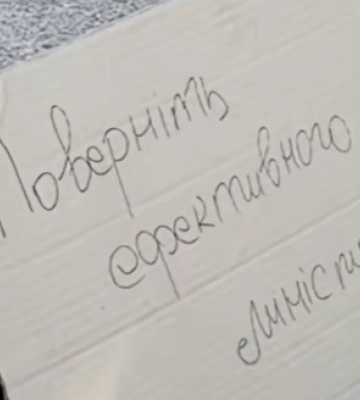 Поверніть
ефективного
мініст